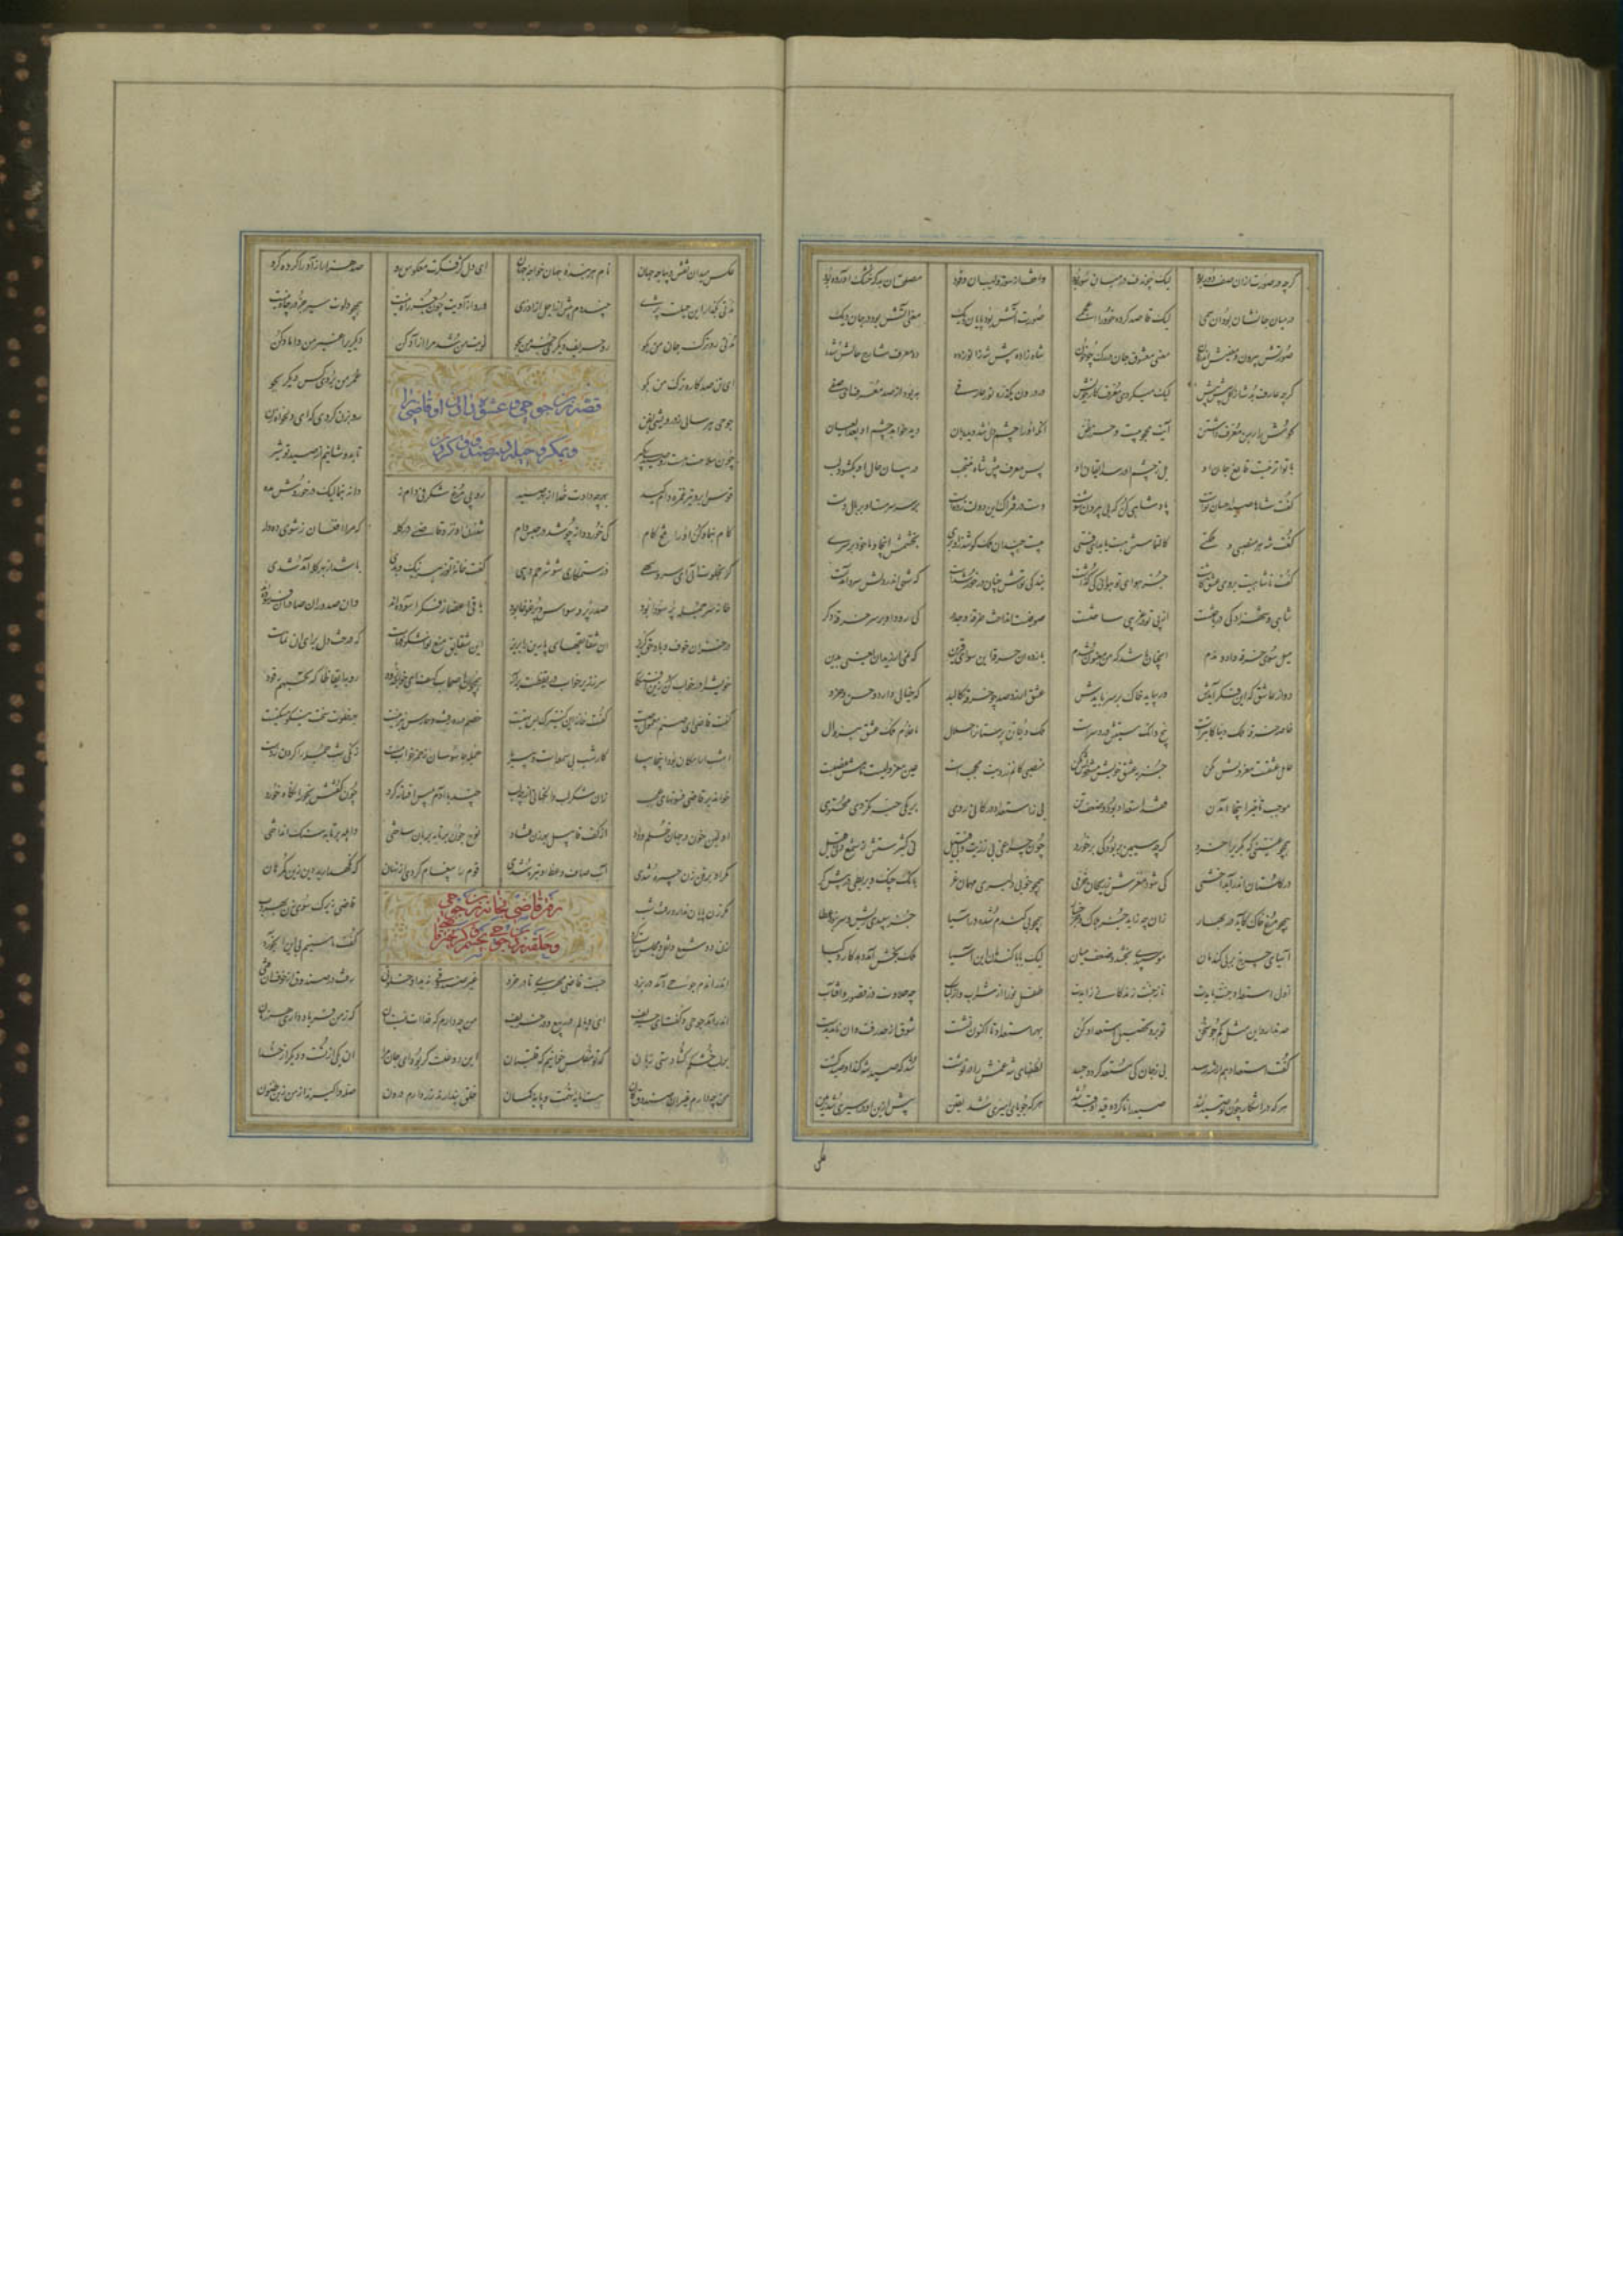 گرچه در صورت از آن صف دور بود لیک چون دف در میان سور بود واقف از سوز و لهیب آن وفود مصلحت آن بد که خشک آورده بود
در میان جانشان بود آن سمی لیک قاصد کرده خود را اعجمی صورت آتش بود پایان دیگ معنی آتش بود در جان دیگ
صورتش بیرون و معنیش اندرون معنی معشوق جان در رگ چو خون شاه زاده پیش شه زانو زده ده معرف شارح حالش شده
گرچه شه عارف بد از کل پیش پیش لیک میکردی معرف کار خویش در درون یک ذره نور عارفی به بود از صد معرف ای صفی
گوش را رهن معرف داشتن آیت محجوبیت و حزر و ظن آنکه او را چشم دل شد دیدبان دید خواهد چشم او بعد العیان
با تواتر نیست قانع جان او بل ز چشم دل رسد ایقان او پس معرف پیش شاه منتجب در بیان حال او بگشود لب
گفت شاها صید احسان توست پادشاهی کن که بی بیرون شوست دست در فتراک این دولت زدست بر سر سرمست او بر مال دست
گفت شه هر منصبی و ملکتی کالتماسش هست یابد این فتی بیست چندان ملک کو شد زان بری بخشمش اینجا و ما خود بر سری
گفت تا شاهیت در وی عشق کاشت جز هوای تو هوایی کی گذاشت بندگی توش چنان درخورد شدست که شهی اندر دل او سرد آمدست
شاهی و شهزادگی در باختست از پی تو در غریبی ساختست صوفیست انداخت خرقه وجد در کی رود او بر سر خرقه دگر
میل سوی خرقه داده و ندم آنچنان باشد که من مغبون شدم باز ده آن خرقه این سو ای قرین که نمی ارزید آن یعنی بدین
دور از عاشق که این فکر آیدش ور بیاید خاک بر سر بایدش عشق ارزد صد چو خرقه کالبد که حیاتی دارد و حس و خرد
خاصه خرقه ملک دنیا کابترست پنج دانگ مستیش درد سرست ملک دنیا تن پرستان را حلال ما غلام ملک عشق بی زوال
عامل عشقست معزولش مکن جز به عشق خویش مشغولش مکن منصبی کانم ز رؤیت محجب است عین معزولیست نامش منصبست
موجب تأخیر اینجا آمدن فقد استعداد بود و ضعف تن بی ز استعداد در کانی روی بر یکی حبه نگردی محتوی
همچو عنینی که بکری را خرد گرچه سیمین بر بود کی بر خورد چون چراغی بی ز زیت و بی فتیل نی کثیرستش ز شمع و نی قلیل
در گلستان اندر آید اخشمی کی شود مغزش ز ریحان خرمی همچو خوبی دلبری مهمان غر بانگ چنگ و بربطی در پیش کر
همچو مرغ خاک کآید در بحار زان چه یابد جز هلاک و جز خسار همچو بی گندم شده در آسیا جز سپیدی ریش و مو نبود عطا
آسیای چرخ بر بی گندمان موسپیدی بخشد و ضعف میان لیک با باگندمان این آسیا ملک بخش آمد دهد کار و کیا
اول استعداد جنت بایدت تا ز جنت زندگانی زایدت طفل نو را از شراب و از کباب چه حلاوت وز قصور و از قباب
حد ندارد این مثل کم جو سخن تو برو تحصیل استعداد کن بهر استعداد تا اکنون نشست شوق از حد رفت و آن نامد بدست
گفت استعداد هم از شه رسد بی ز جان کی مستعد گردد جسد لطفهای شه غمش را در نوشت شد که صید شه کند او صید گشت
هر که در اشکار چون تو صید شد صید را ناکرده قید او قید شد هر که جویای امیری شد یقین پیش از آن او در اسیری شد رهین
عکس میدان نقش دیباجه جهان نام هر بنده جهان خواجه جهان ای دل کژ فکرت معکوس رو صد هزار آزاد را کرده گرو
مدتی بگذار این حیلت پزی چند دم پیش از اجل آزاد زی ور در آزادیت چون خر راه نیست همچو دلوت سیر جز در چاه نیست
مدتی رو ترک جان من بگو رو حریف دیگری جز من بجو نوبت من شد مرا آزاد کن دیگری را غیر من داماد کن
ای تن صدکاره ترک من بگو عمر من بردی کسی دیگر بجو
قصه زن جوحی و عشوه دادن او قاضی را
و بمکر و حیله در صندوق کردن
جوحی هر سالی ز درویشی بفن رو بزن کردی که ای دلخواه زن
چون سلاحت هست رو صیدی بگیر تا بدوشانیم از صید تو شیر
قوس ابرو تیر غمزه دام کید بهر چه دادت خدا از بهر صید رو پی مرغی شگرفی دام نه دانه بنما لیک در خوردش مده
کام بنما و کن او را تلخ کام کی خورد دانه چو شد در حبس دام شد زن او نزد قاضی در گله که مرا افغان ز شوی ده دله
گفت خانه تو ز هر نیک و بدی باشد از بهر گله آمد شدی
خانه سر جمله پر سودا بود صدر پر وسواس و پر غوغا بود باقی اعضا ز فکر آسوده‌اند وان صدور از صادران فرسوده‌اند
گفت قاضی ای صنم معمول چیست گفت خانه این کنیزک بس تهیست خصم در ده رفت و حارس نیز نیست بهر خلوت سخت نیکو مسکنیست
امشب ار امکان بود آنجا بیا کار شب بی سمعه است و بی ریا جمله جاسوسان ز خمر خواب مست زنگی شب جمله را گردن زدست
خواند بر قاضی فسونهای عجب آن شکرلب وانگهانی از چه لب چند با آدم بلیس افسانه کرد چون حوا گفتش بخور آنگاه خورد
اولین خون در جهان ظلم و داد از کف قابیل بهر زن فتاد نوح چون بر تابه بریان ساختی واهله بر تابه سنگ انداختی
مکر زن بر فن او چیره شدی آب صاف وعظ او تیره شدی قوم را پیغام کردی از نهان که نگه دارید دین زین گمرهان
رفتن قاضی بخانه زن جوحی
و حلقه زدن جوحی بخشم بر در
مکر زن پایان ندارد رفت شب قاضی زیرک سوی زن بهر دب
زن دو شمع و نقل مجلس راست کرد گفت ما مستیم بی این آبخورد
اندر آن دم جوحی آمد در بزد جست قاضی مهربی تا در خزد غیر صندوقی ندید او خلوتی رفت در صندوق از خوف آن فتی
اندر آمد جوحی و گفت ای حریف ای وبالم در ربیع و در خریف من چه دارم که فداات نیست آن که ز من فریاد داری هر زمان
بر لب خشکم گشادستی زبان گاه مفلس خوانیم گه قلتبان این دو علت گر بود ای جان مرا آن یکی از تست و دیگر از خدا
من چه دارم غیر آن صندوق کان هست مایه تهمت و پایه گمان خلق پندارند زر دارم درون صله واگیرند از من زین ظنون